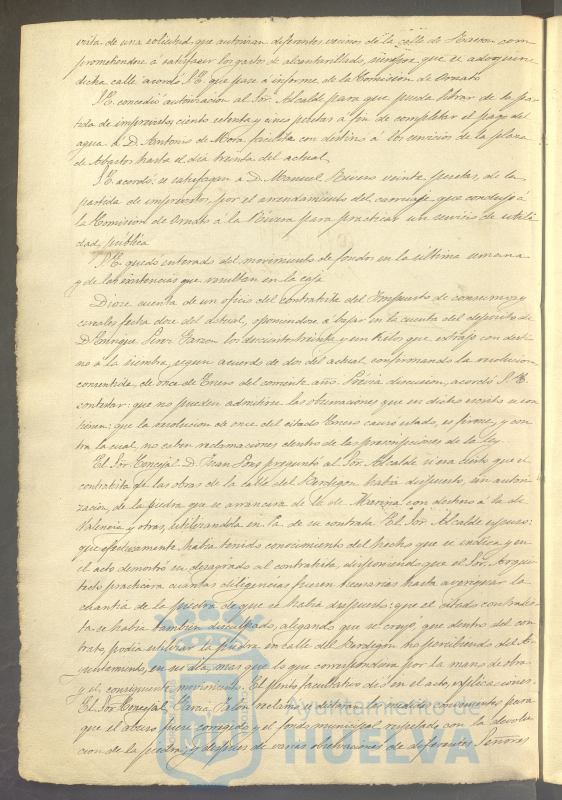 vista de una solicitud que autorizan diferentes vecinos de la calle de Rascon com
prometiendose a satisfacer los gastos de alcantarillado, siempre que se adoquine
dicha calle acordó S.E. que pase á informe de la Comision de Ornato
S.E. concedió autorizacion al Sor. Alcalde para que pueda librar de la par
tida de imprevistos ciento setenta y cinco pesetas á fin de completar el pago del
agua á D. Antonio de Mora facilita con destino á los servicios de la plaza
de Abastos hasta el dia treinta del actual,
S.E. acordó: se satisfagan á D. Manuel Rivero veinte pesetas, de la
partida de imprevistos, por el arrendamiento del carruaje que condujo á
la Comision de Ornato á la Rivera para practicar un servicio de utili
dad pública
S.E. quedó enterado del movimiento de fondos en la última semana
y de las existencias que resultan en la caja
Diose cuenta de un oficio del contratista del Impuesto de consumos y
cereales fecha doce del actual, oponiendose á bajar en la cuenta del deposito de
D. Enrique Garzon los doscientos treinta y un kilos que extrajo con desti
no á la siembra, segun acuerdo de dos del actual, confirmando la resolucion
consentida, de once de Enero del corriente año. Prévia discusion, acordó S.E.
contestar: que no pueden admitirse las observaciones que en dicho escrito se con
tienen: que la resolucion de once del citado Enero causó estado, es firme, y con
tra la cual, no caben reclamaciones dentro de las prescripciones de la Ley.
El Sor. Concejal D. Juan Pons preguntó al Sor. Alcalde si era cierto que el
contratista de las obras de la calle del Bardegon habia dispuesto, sin autori
zacion, de la piedra que se arrancara de la de Marina con destino á la de
Valencia y otras, utilizandola en la de su contrata El Sor. Alcalde expuso:
que efectivamente habia tenido conocimiento del hecho que se indica y en
el acto demostró su desagrado al contratista, disponiendo que el Sor. Arqui
tecto practicara cuantas diligencias fuesen necesarias hasta averiguar la
cuantia de la piedra de que se habia dispuesto: que el citado contratis
ta se habia tambien disculpado, alegando que se creyó, que dentro del con
trato, podia utilizar la piedra en calle del Bardegon no percibiendo del A
yuntamiento, en su dia, mas que lo que correspondiera por la mano de obra
y el consiguiente movimiento. El perito facultativo dió en el acto, explicaciones.
El Sor. Concejal Garcia Palon reclamó se dictaran las medidas conducentes para
que el abuso fuese corregido y el fondo municipal respetado, con la devolu
cion de la piedra; y despues de varias observaciones de diferentes Señores
Ayuntamiento de
HUELVA